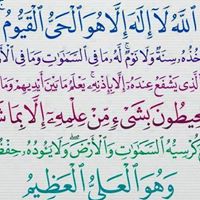 ٱللَّهُ لَآ إِلَٰهَ إِلَّا هُوَ ٱلْحَىُّ ٱلْقَيُّومُ
خُذُهُۥ سِنَةٌ وَلَا نَوْمٌ لَّهُۥ مَا فِى ٱلسَّمَٰوَٰتِ وَمَا فِى ٱلْأَ
ٱلَّذِى يَشْفَعُ عِندَهُۥٓ إِلَّا بِإِذْنِهِۦ يَعْلَمُ مَا بَيْنَ أَيْدِيهِمْ وَمَا
حِيطُونَ بِشَىْءٍ مِّنْ عِلْمِهِۦٓ إِلَّا بِمَا شَ
كُرْسِيُّهُ ٱلسَّمَٰوَٰتِ وَٱلْأَرْضَ وَلَا يَـُٔودُهُۥ حِفْظُ
وَهُوَ ٱلْعَلِىُّ ٱلْعَظِيمُ